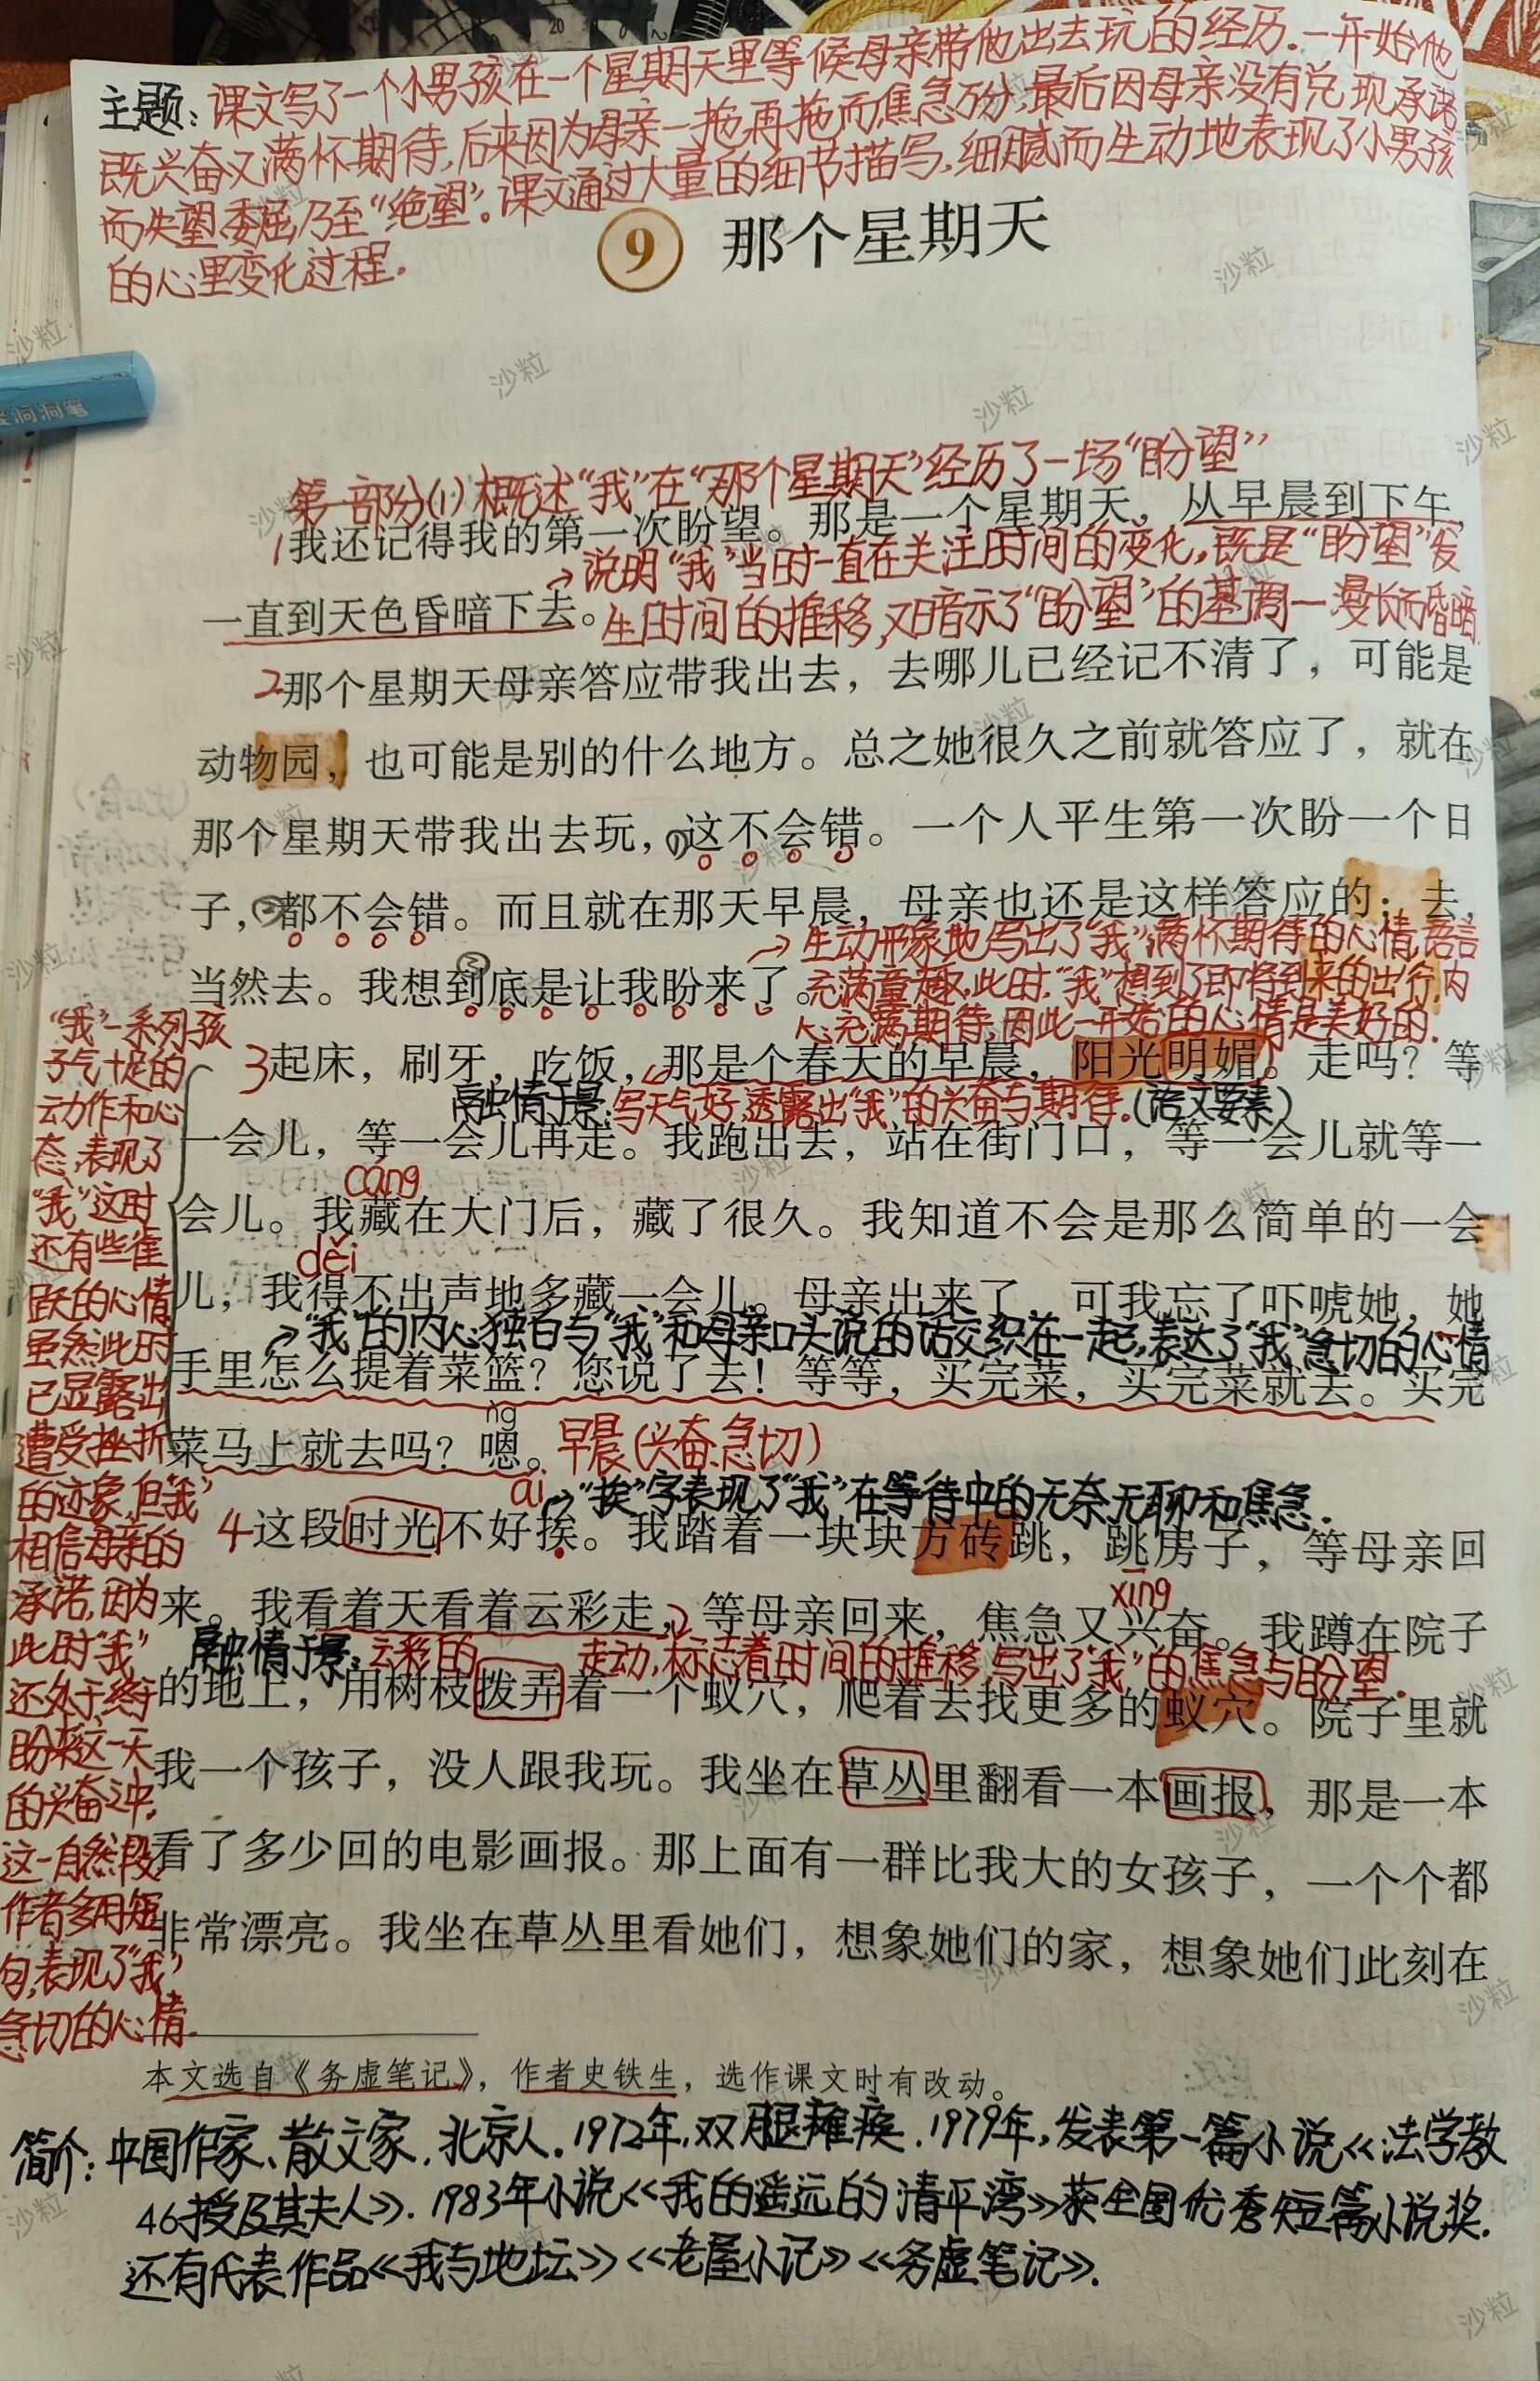 主题：课文写了一个小男孩在一个星期天里等候母亲带他出去玩的经历。一开始他
既兴奋又满怀期待，后来因为母亲一拖再拖而焦急万分，最后因母亲没有兑现承诺
而失望、委屈，乃至“绝望”。课文通过大量的细节描写，细腻而生动地表现了小男孩
的心里变化过程。
9 那个星期天
第一部分(1) 概述“我”在“那个星期天”经历了一场“盼望”
1我还记得我的第一次盼望。那是一个星期天，从早晨到下午，
→说明“我”当时一直在关注时间的变化，既是“盼望”发
一直到天色昏暗下去。
生时间的推移，又暗示了“盼望”的基调—漫长而昏暗
2那个星期天母亲答应带我出去，去哪儿已经记不清了，可能是
动物园，也可能是别的什么地方。总之她很久之前就答应了，就在
那个星期天带我出去玩，①这不会错。一个人平生第一次盼一个日
子，②都不会错。而且就在那天早晨，母亲也还是这样答应的：去，
→生动形象地写出了“我”满怀期待的心情，语言
当然去。我想到底是让我盼来了。
充满童趣。此时，“我”想到了即将到来的出行，内
心充满期待，因此一开始的心情是美好的。
3起床，刷牙，吃饭，那是个春天的早晨，阳光明媚。走吗？等
融情于景：写天气好，透露出“我”的兴奋与期待。(语文要素)
一会儿，等一会儿再走。我跑出去，站在街门口，等一会儿就等一
cáng
会儿。我藏在大门后，藏了很久。我知道不会是那么简单的一会
děi
儿，我得不出声地多藏一会儿。母亲出来了，可我忘了吓唬她，她
→“我”的内心独白与“我”和母亲口头说的话交织在一起，表达了“我”急切的心情
手里怎么提着菜篮？您说了去！等等，买完菜，买完菜就去。买完
ǹg
菜马上就去吗？嗯。早晨(兴奋、急切)
ái
→“挨”字表现了“我”在等待中的无奈无聊和焦急.
4这段时光不好挨。我踏着一块块方砖跳，跳房子，等母亲回
xīng
来。我看着天看着云彩走，等母亲回来，焦急又兴奋。我蹲在院子
融情于景：云彩的走动，标志着时间的推移，写出了“我”的焦急与盼望.
的地上，用树枝拨弄着一个蚁穴，爬着去找更多的蚁穴。院子里就
我一个孩子，没人跟我玩。我坐在草丛里翻看一本画报，那是一本
看了多少回的电影画报。那上面有一群比我大的女孩子，一个个都
非常漂亮。我坐在草丛里看她们，想象她们的家，想象她们此刻在
“我”一系列孩
子气十足的
动作和心
态，表现了
“我”这时
还有些雀
跃的心情
虽然此时
已显露出
遭受挫折
的迹象，但“我”
相信母亲的
承诺，因为
此时“我”
还处于终于
盼来这一天
的兴奋之中。
这一自然段
作者多用短
句，表现了“我”
急切的心情.
本文选自《务虚笔记》，作者史铁生，选作课文时有改动。
简介：中国作家、散文家.北京人。1972年，双腿瘫痪.1979年，发表第一篇小说《法学教
46授及其夫人》.1983年小说《我的遥远的清平湾》获全国优秀短篇小说奖.
还有代表作品《我与地坛》《老屋小记》《务虚笔记》.
沙粒